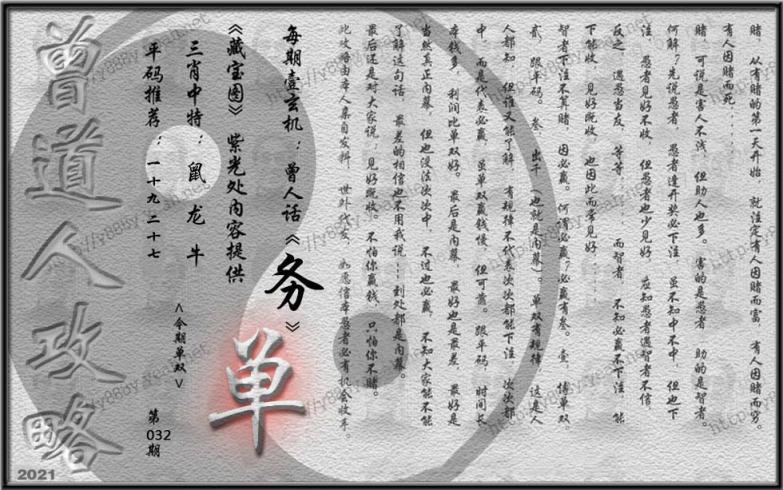 赌，从有赌的第一天开始，就注定有人因赌而富，有人因赌而穷。
有人因赌而死……
赌，可说是害人不浅，但助人也多。害的是愚者，助的是智者。
何解？先说愚者，愚者逢开奖必下注，虽不知中不中，但也下
注，愚者见好不收，但愚者也少见好，应知愚者遇智者不信，
反之，遇愚当友，等等……而智者，不知必赢不下注，能
下能收，见好既收，也因此而常见好……
智者下注不算赌，因必赢。何谓必赢？必赢有叁。壹，博单双
贰，跟平码。叁，出千（也就是内幕）。单双有规律，这是人
人都知，但谁又能了解，有规律不代表次次都能下注，次次都
中，而是代表必赢，虽单双赢钱慢，但可靠。跟平码，时间长
本钱多，利润比单双好。最后是内幕，最好也是最差，最好是
当然真正内幕，但也没法次次中，不过也必赢，不知大家能不能
了解这句话，最差的相信也不用我说……到处都是内幕。
最后还是对大家说：见好既收。不怕你赢钱，只怕你不赌。
此攻略由本人亲自发料，世外代发，如愿信奉愚者必有机会收年。
每期壹玄机：曾人话《务》
《藏宝图》紫光处内容提供
三肖中特：鼠 龙 牛
平码推荐：一十九 二十七
<今期单双>
单
第
032
期
曾道人攻略
2021